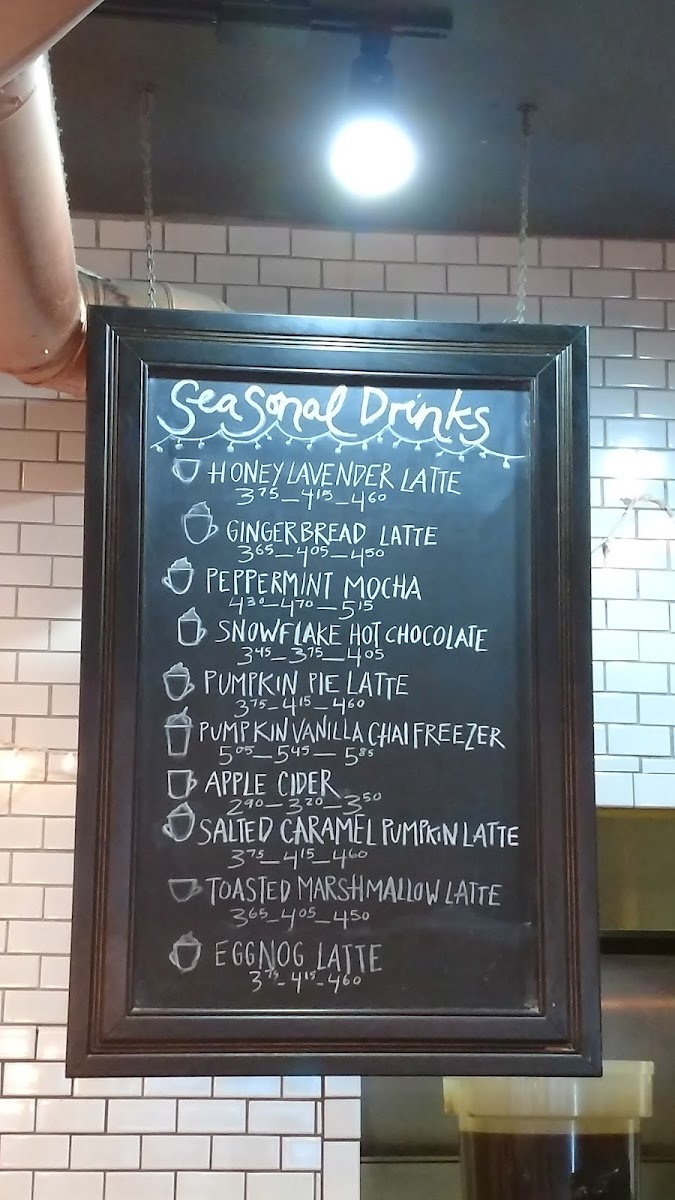 Seasonal Drinks
HONEY LAVENDER LATTE
3 75 — 4 15 — 4 60
GINGERBREAD LATTE
3 65 — 4 05 — 4 50
PEPPERMINT MOCHA
4 30 — 4 70 — 5 15
SNOWFLAKE HOT CHOCOLATE
3 45 — 3 75 — 4 05
PUMPKIN PIE LATTE
3 75 — 4 15 — 4 60
PUMPKIN VANILLA CHAI FREEZER
5 05 — 5 45 — 5 85
APPLE CIDER
2 90 — 3 20 — 3 50
SALTED CARAMEL PUMPKIN LATTE
3 75 — 4 15 — 4 60
TOASTED MARSHMALLOW LATTE
3 65 — 4 05 — 4 50
EGGNOG LATTE
3 75 — 4 15 — 4 60